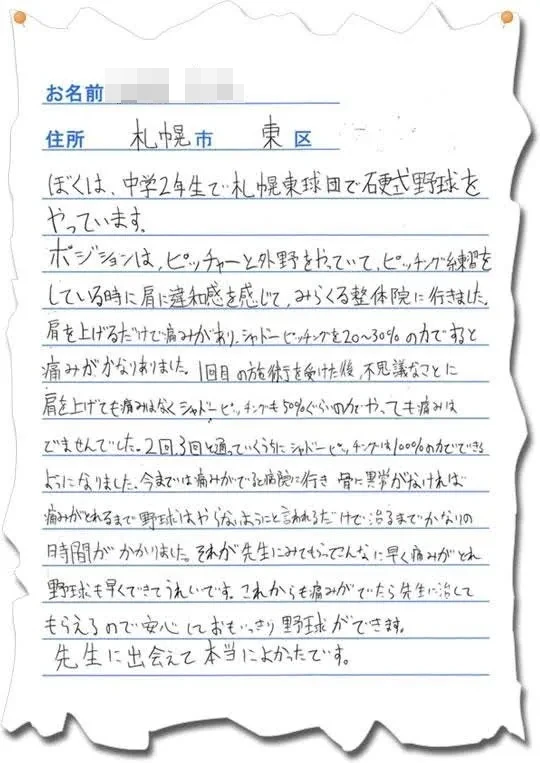 お名前
住所 札幌市 東区
ぼくは、中学2年生で札幌東球団で硬式野球を
やっています。
ポジションは、ピッチャーと外野をやっていて、ピッチング練習を
している時に肩に違和感を感じて、みらくる整体院に行きました。
肩を上げるだけで痛みがあり、シャドーピッチングを20〜30%の力ですると
痛みがかなりありました。1回目の施術を受けた後、不思議なことに
肩を上げても痛みはなくシャドーピッチングも50%ぐらいの力でやっても痛みは
でませんでした。2回、3回と通っていくうちにシャドーピッチングは100%の力でできる
ようになりました。今までは痛みがでると病院に行き 骨に異常がなければ
痛みがとれるまで野球はやらないようにと言われるだけで治るまでかなりの
時間がかかりました。それが先生にみてもらってこんなに早く痛みがとれ
野球も早くできてうれいです。これからも痛みがでたら先生に治して
もらえるので安心しておもいっきり野球ができます。
先生に出会えて本当によかったです。